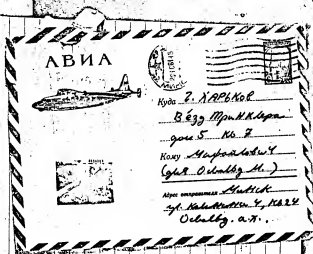 АВИА
Куда г. ХАРЬКОВ
Въезд Тринклера
дом 5 кв 7
Кому
(для Освальд М.)
Адрес отправителя Минск
ул. Калинина 4, кв 24
Освальд. а.х.